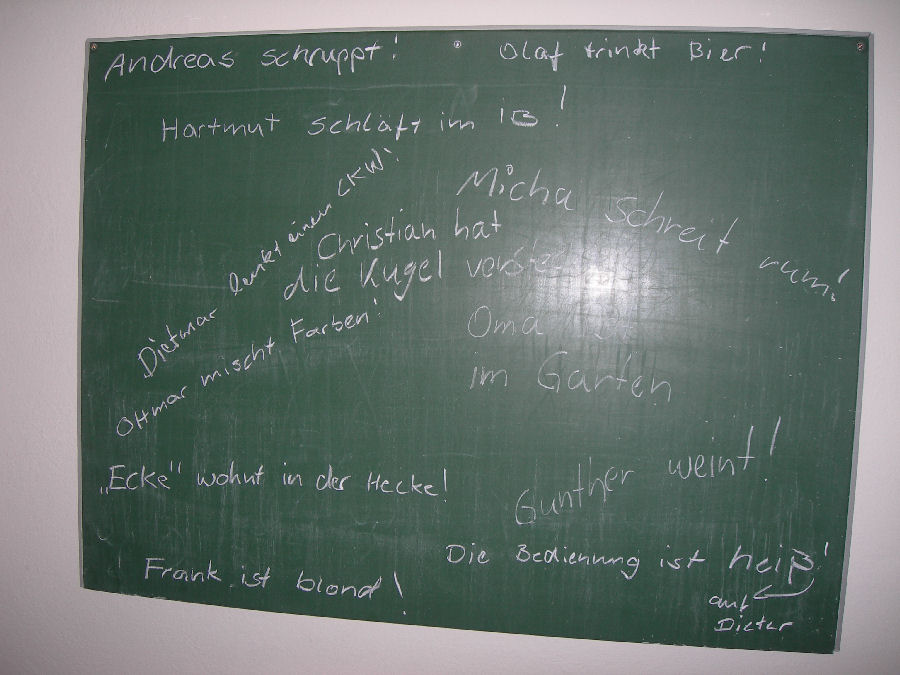 Andreas schruppt!
Olaf trinkt Bier!
Hartmut schläft im iB!
Micha schreit rum!
Dietmar lenkt einen LKW!
Christian hat
die Kugel
Ottmar mischt Farben!
Oma
im Garten
„Ecke“ wohnt in der Hecke!
Gunther weint!
Die Bedienung ist heiß!
auf
Dieter
Frank ist blond!